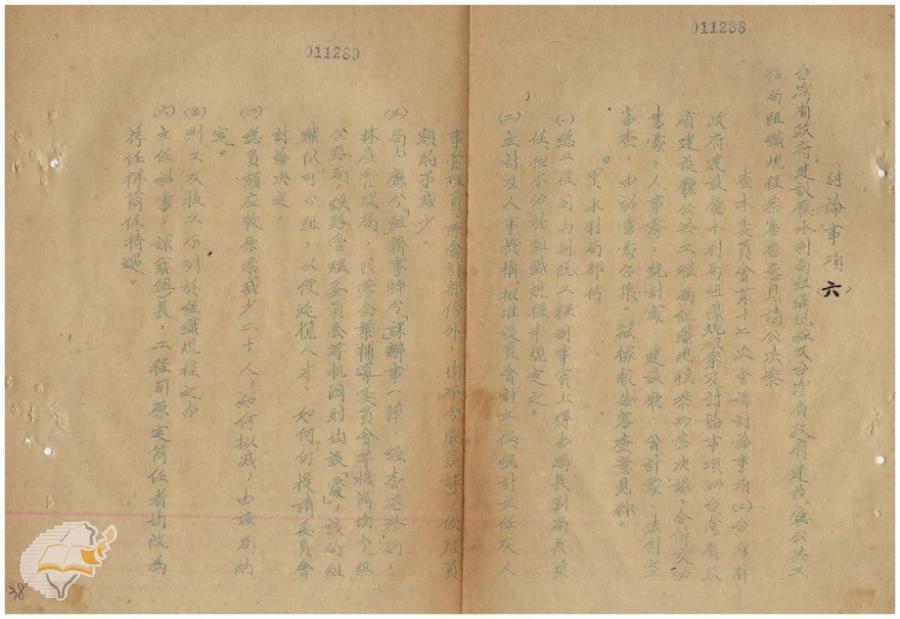 011288
討論事項(六)
台灣省政府建設廳水利局組織規程及台灣省政府建設廳公共工
程局組織規程草案審查意見請公決案
查本委員會第十七次會議討論事項(二)台灣省
政府建設廳水利局組織規程案及討論事項(四)台灣省政
府建設廳公共工程局組織規程案兩案決議：合併交秘
書處，人事處，統計處，建設廳，會計處，法制室
審查，由
甲、水利局部份
(一)總工程司為副總工程司事實上得由局長副局長兼
任似不必於組織規程中規定之。
(二)主計及人事機構，擬准設員會計主任統計主任及人
011289
事管理員，除會計部份外，均不分股(或課)佐理員
額酌予減少。
(三)局，應分「組」辦事抑分「課」辦事一節，經查港務局，
林產管理局，民營企業輔導委員會等機關均分組
公路局，鐵路管理委員會等機關則尚設「處」，該局組
織似可分組，以便延攬人才，如何，仍提請委員會
討論決定。
(四)總員額應較原案減少二十人，如何擬減，由該局酌
定。
(五)副工及技工不列於組織規程之內
(六)主任幹事，課(或組)長，工程司原定簡任者均改為
荐任得簡任待遇。
38